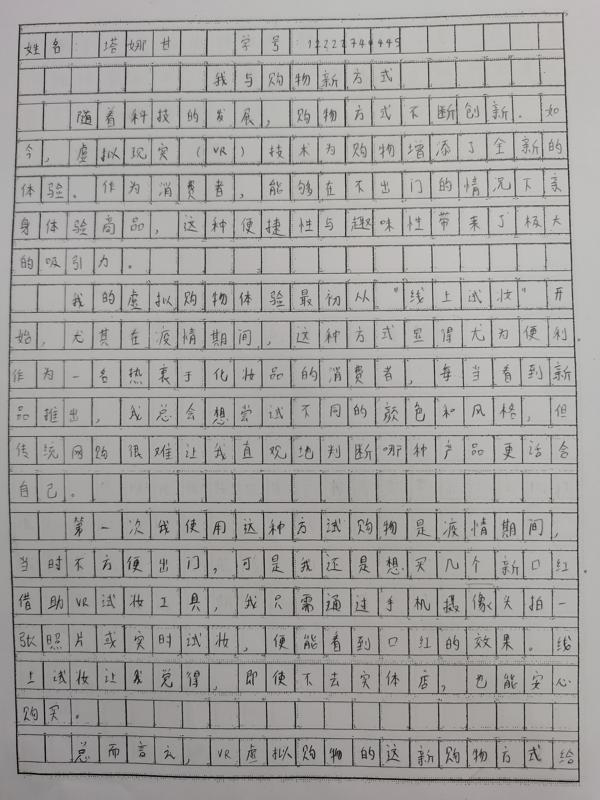 姓名：塔娜甘 学号：12222744449
我与购物新方式
随着科技的发展，购物方式不断创新。如
今，虚拟现实（VR）技术为购物增添了全新的
体验。作为消费者，能够在不出门的情况下亲
身体验商品，这种便捷性与趣味性带来了极大
的吸引力。
我的虚拟购物体验最初从“线上试妆”开
始，尤其在疫情期间，这种方式显得尤为便利。
作为一名热衷于化妆品的消费者，每当看到新
品推出，我总会想尝试不同的颜色和风格，但
传统网购很难让我直观地判断哪种产品更适合
自己。
第一次我使用这种方试购物是疫情期间，
当时不方便出门，可是我还是想买几个新口红。
借助VR试妆工具，我只需通过手机摄像头拍一
张照片或实时试妆，便能看到口红的效果。线
上试妆让我觉得，即使不去实体店，也能安心
购买。
总而言之，VR虚拟购物的这新购物方式给